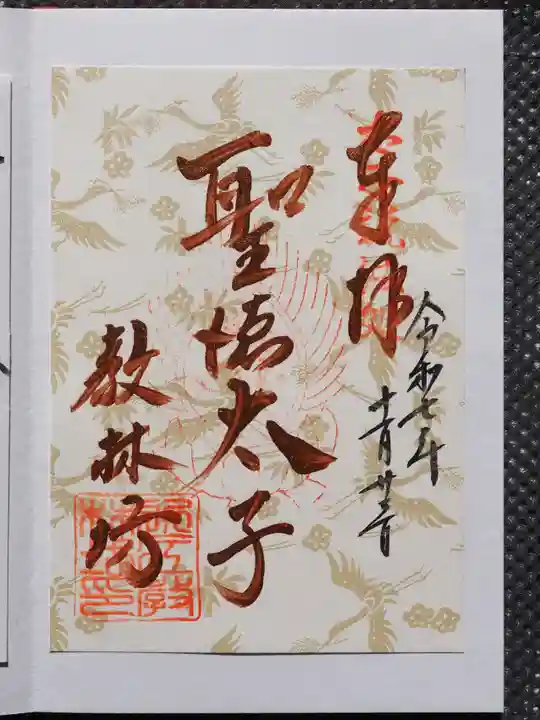 奉拝
令和七年
十一月廿三日
聖徳太子
教林坊